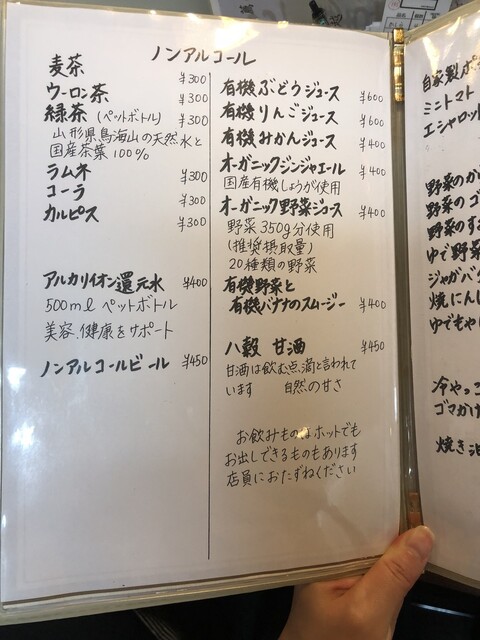 ノンアルコール
麦茶 ¥300
ウーロン茶 ¥300
緑茶 (ペットボトル) ¥300
山形県鳥海山の天然水と
国産茶葉100%
ラムネ ¥300
コーラ ¥300
カルピス ¥300
アルカリイオン還元水 ¥400
500ml ペットボトル
美容、健康をサポート
ノンアルコールビール ¥450
有機ぶどうジュース ¥600
有機りんごジュース ¥600
有機みかんジュース ¥400
オーガニックジンジャエール ¥400
国産有機しょうが使用
オーガニック野菜ジュース ¥400
野菜350g分使用
(推奨摂取量)
20種類の野菜
有機野菜と
有機バナナのスムージー ¥400
八穀 甘酒 ¥450
甘酒は飲む点滴と言われて
います 自然の甘さ
お飲みものはホットでも
お出しできるものもあります
店員におたずねください
自家製ポ
ミニトマト
エシャロット
野菜のか
野菜のゴ
野菜のす
ゆで野菜
ジャガバタ
焼にんに
ゆでもや
冷やっこ
ゴマかけ
焼き